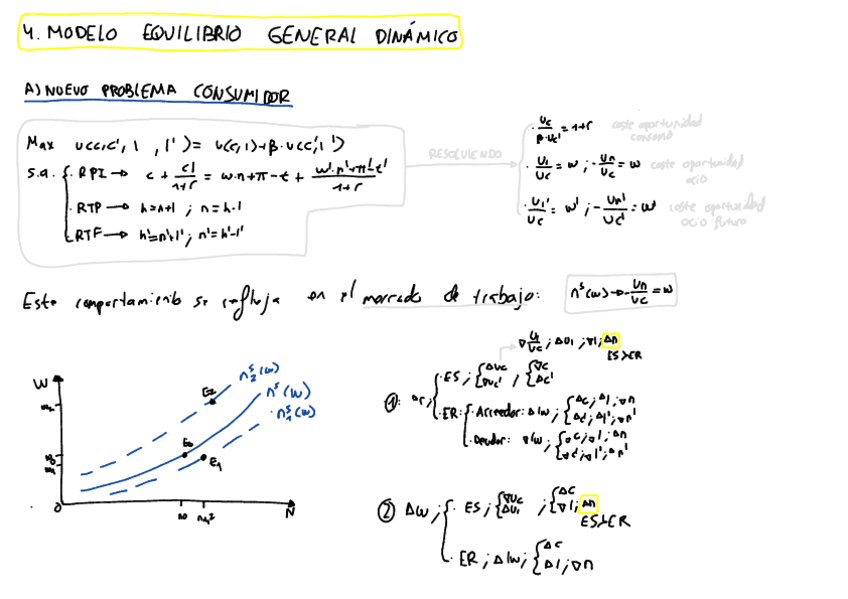 4. MODELO EQUILIBRIO GENERAL DINÁMICO
A) NUEVO PROBLEMA CONSUMIDOR
Max u(c,c',l,l') = u(c,l)+β·u(c',l')
s.a. { ·RPI → c + c'/1+r = w·n+π-t + w'·n'+π'-t'/1+r
·RTP → h=n+l ; n=h-l
RTF → h'=n'+l' ; n'=h'-l'
RESOLVIENDO
· Uc/β·Uc' = 1+r coste oportunidad consumo
· Ul/Uc = w ; -Un/Uc = w coste oportunidad ocio
· Ul'/Uc' = w' ; -Un'/Uc' = w' coste oportunidad ocio futuro
Este comportamiento se refleja en el mercado de trabajo:
nˢ(w) → -Un/Uc = w
W
nˢ₂(w)
nˢ(w)
nˢ₁(w)
E₂
E₀
E₁
w₂
w₀
w₁
0
n₀
N
∇ Ul/Uc ; ΔUl ; ∇l ; Δn
ES>ER
①: Δr; { ·ES; { ΔUc ∇Uc' ; { ∇c Δc'
·ER: { ·Acreedor: Δ|w; { Δc; Δl; ∇n Δc'; Δl'; ∇n'
·Deudor: ∇|w; { ∇c; ∇l; Δn ∇c'; ∇l'; Δn'
② Δw; { · ES; { ∇Uc ΔUl ; { Δc ∇l; Δn
ES>ER
· ER; Δ|w; { Δc Δl; ∇n